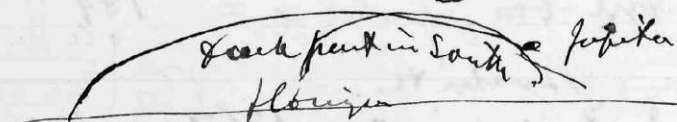 dark part in South Jupiter
Horizon